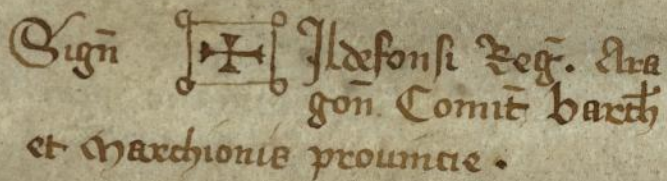 Sign̄ Ildefonsi Reḡ. Ara
gon̄ Comit̄ barch̄
et Marchionis prouincie.